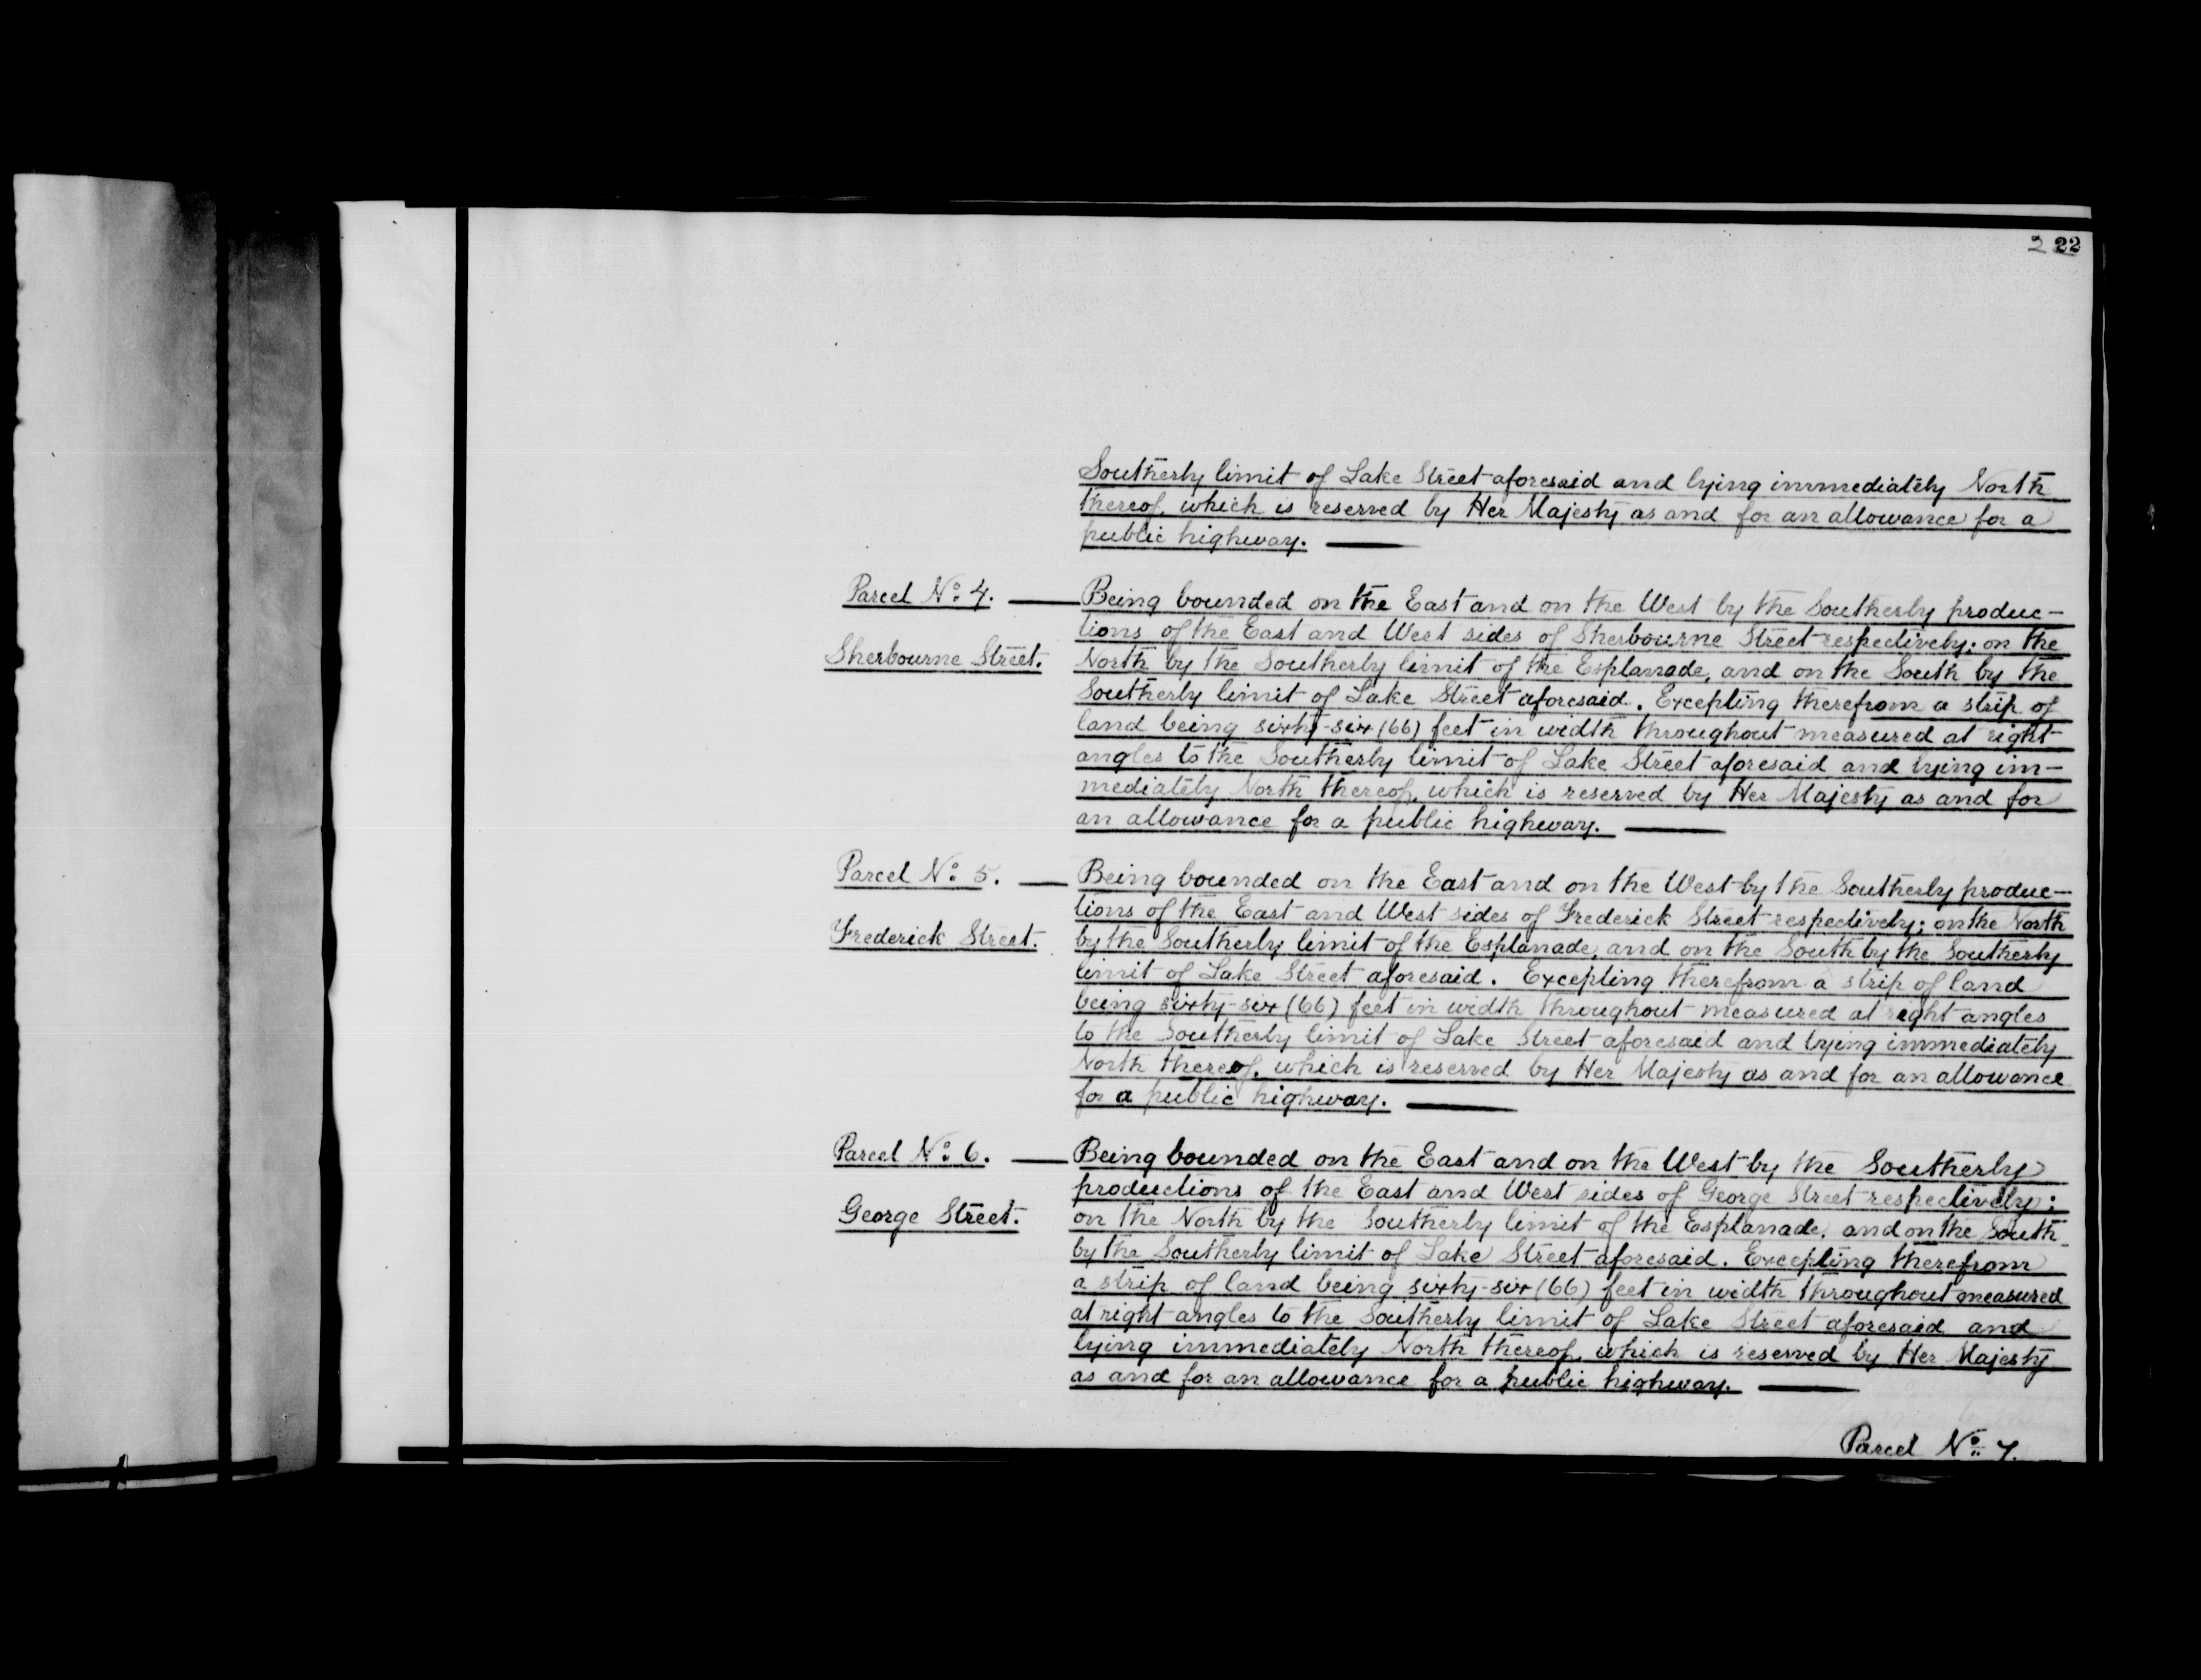 2 22
Southerly limit of Lake Street aforesaid and lying immediately North
thereof, which is reserved by Her Majesty as and for an allowance for a
public highway.
Parcel No. 4. — Being bounded on the East and on the West by the Southerly produc-
tions of the East and West sides of Sherbourne Street respectively; on the
Sherbourne Street. North by the Southerly limit of the Esplanade, and on the South by the
Southerly limit of Lake Street aforesaid. Excepting therefrom a strip of
land being sixty-six (66) feet in width throughout measured at right
angles to the Southerly limit of Lake Street aforesaid and lying im-
mediately North thereof, which is reserved by Her Majesty as and for
an allowance for a public highway.
Parcel No. 5. — Being bounded on the East and on the West by the Southerly produc-
tions of the East and West sides of Frederick Street respectively; on the North
Frederick Street. by the Southerly limit of the Esplanade, and on the South by the Southerly
limit of Lake Street aforesaid. Excepting therefrom a strip of land
being sixty-six (66) feet in width throughout measured at right angles
to the Southerly limit of Lake Street aforesaid and lying immediately
North thereof, which is reserved by Her Majesty as and for an allowance
for a public highway.
Parcel No. 6. — Being bounded on the East and on the West by the Southerly
productions of the East and West sides of George Street respectively;
George Street. on the North by the Southerly limit of the Esplanade, and on the South
by the Southerly limit of Lake Street aforesaid. Excepting therefrom
a strip of land being sixty-six (66) feet in width throughout measured
at right angles to the Southerly limit of Lake Street aforesaid and
lying immediately North thereof, which is reserved by Her Majesty
as and for an allowance for a public highway.
Parcel No. 7.